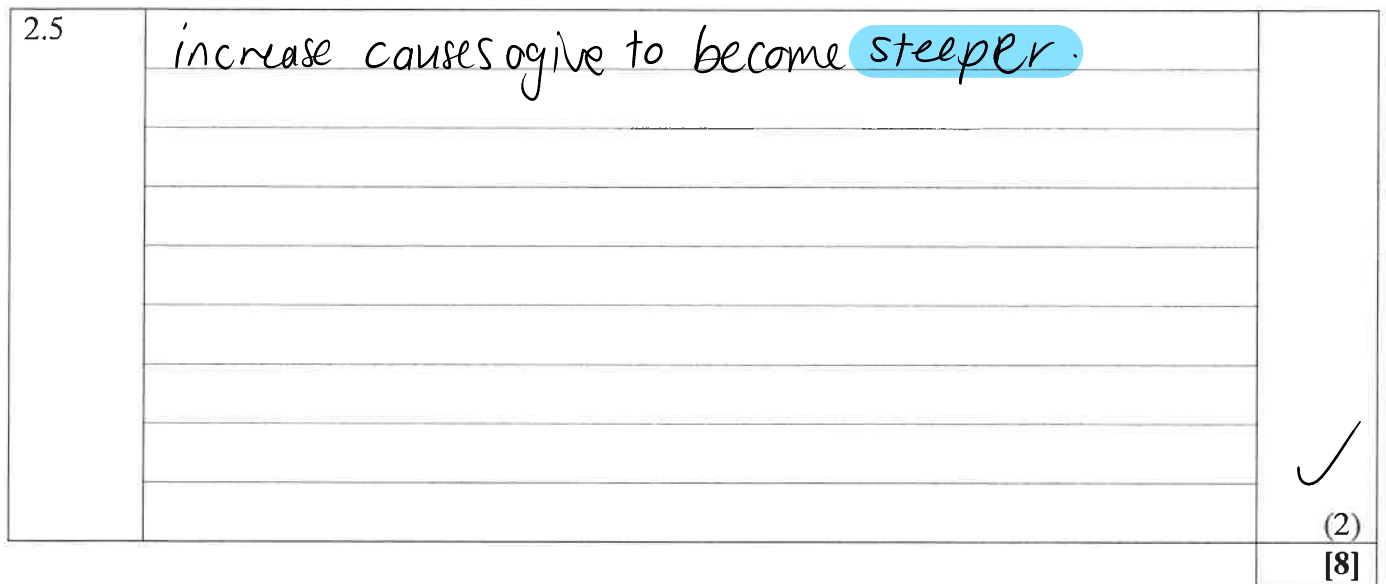 2.5
increase causes ogive to become steeper.
(2)
[8]